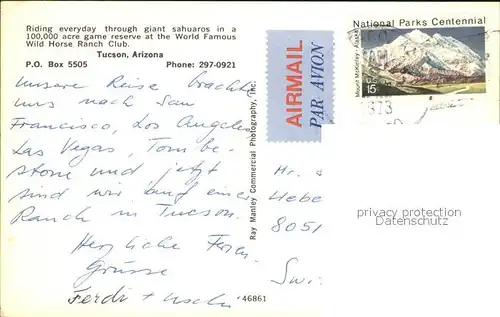 Riding everyday through giant sahuaros in a
100,000 acre game reserve at the World Famous
Wild Horse Ranch Club.
Tucson, Arizona
P.O. Box 5505 Phone: 297-0921
Unsere Reise brachte
uns nach San
Francisco, Los Angeles
Las Vegas, Tombe-
stone und jetzt
sind wir auf einer
Ranch in Tucson.
Herzliche Ferien
Grüsse
Ferdi +
Ray Manley Commercial Photography, Inc.
46861
AIRMAIL
PAR AVION
National Parks Centennial
Mount McKinley · Alaska
U.S.
15¢
1973
Mr.
8051
privacy protection
Datenschutz